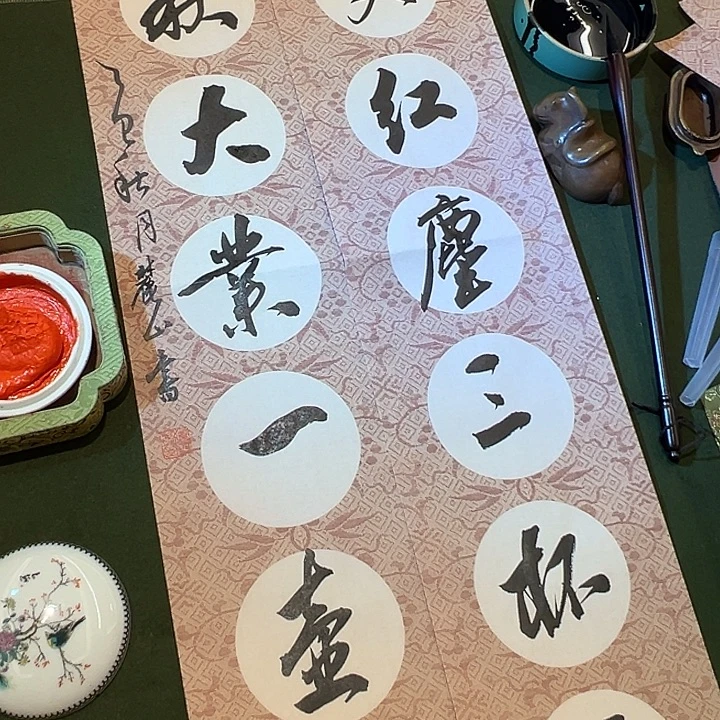 红塵三杯
大業一壶
乙巳秋月麓山書